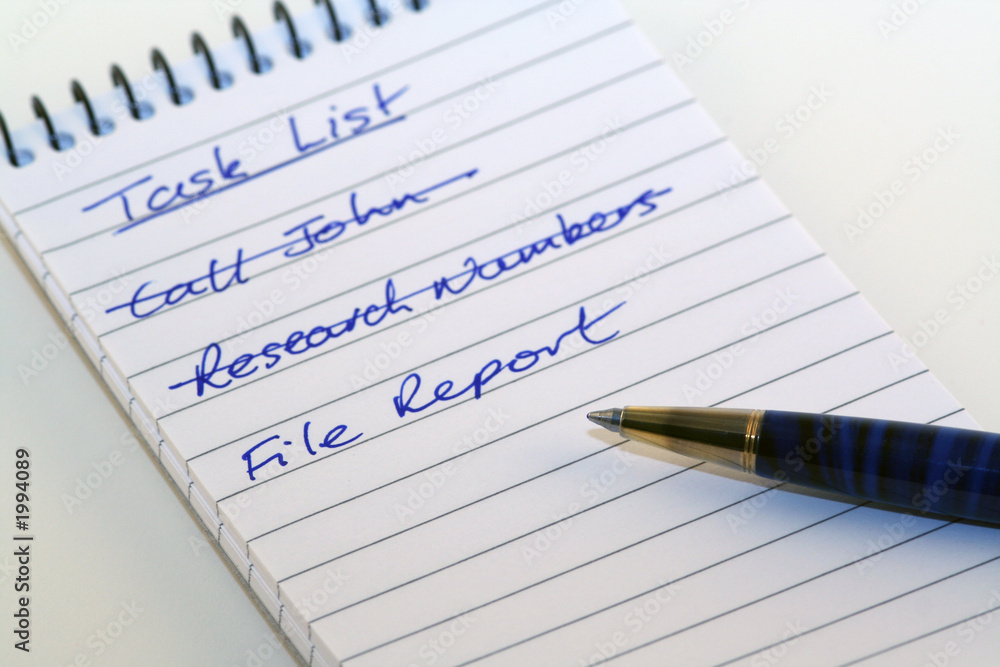 Task List
Call John
Research Numbers
File Report
Adobe Stock | #1994089